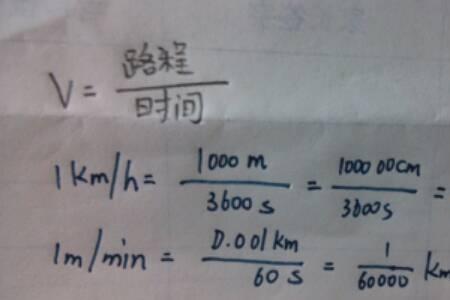 V = 路程/时间
1km/h = 1000 m/3600 s = 100000cm/3600s =
1m/min = 0.001km/60 s = 1/60000 km